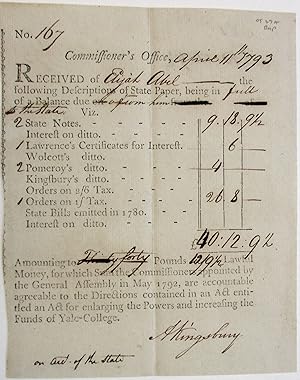 No. 167
Commissioner's Office, April 11th 1793
RECEIVED of Elijah Abel
the following Descriptions of State Paper, being in full
of a Balance due from him
to the State, Viz.
2 State Notes. 9. 18. 9½
Interest on ditto.
1 Lawrence's Certificates for Interest. 6
Wolcott's ditto.
2 Pomeroy's ditto. 4
Kingsbury's ditto.
Orders on 2/6 Tax.
1 Orders on 1/ Tax. 26 8
State Bills emitted in 1780.
£40:12. 9½
Amounting to Thirty forty Pounds 12/9½ Lawful
Money, for which Sum the Commissioners appointed by
the General Assembly in May 1792, are accountable
agreeable to the Directions contained in an Act entitled
an Act for enlarging the Powers and increasing the
Funds of Yale-College.
AKingsbury
on acct. of the State